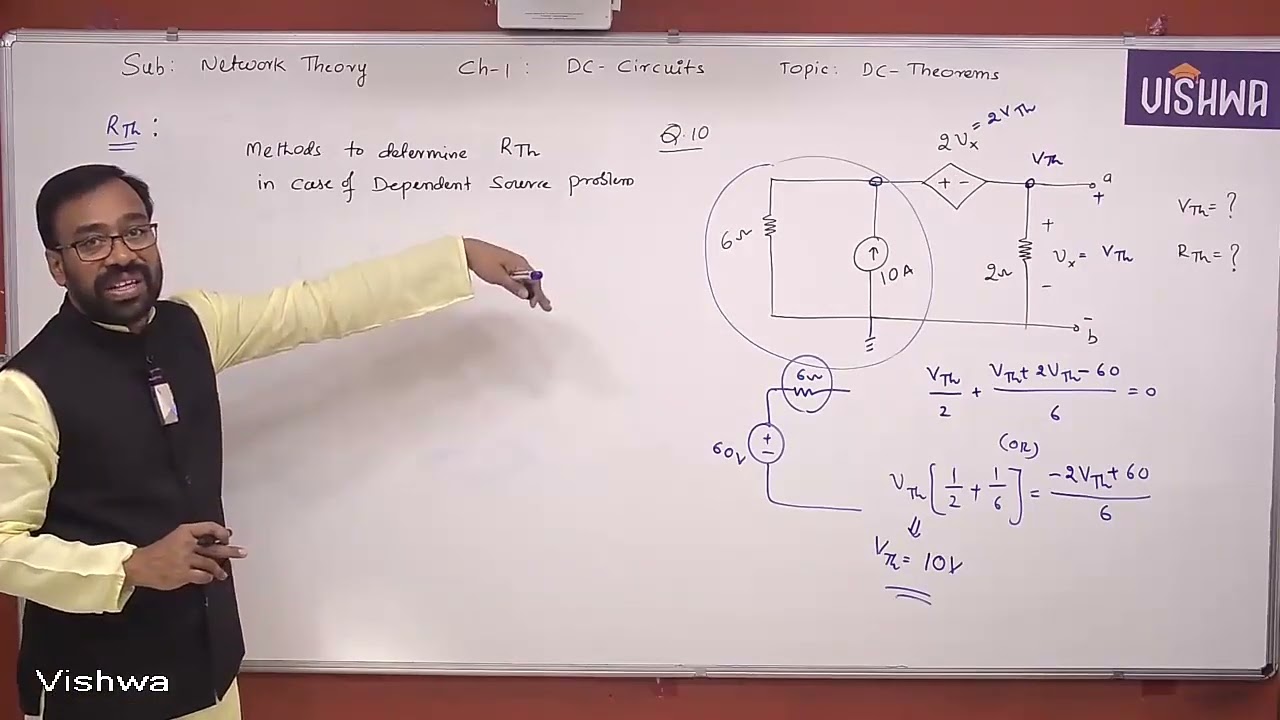 Sub: Network Theory Ch-1: DC-Circuits Topic: DC-Theorems
VISHWA
RTh:
Methods to determine RTh
in case of Dependent Source problem
Q.10
2Vx = 2VTh
VTh
a
+
+ -
6Ω
10A
2Ω
+
Vx = VTh
-
-
b
VTh = ?
RTh = ?
6Ω
60V
+
-
VTh/2 + (VTh + 2VTh - 60)/6 = 0
(OR)
VTh [1/2 + 1/6] = (-2VTh + 60)/6
VTh = 10V
Vishwa